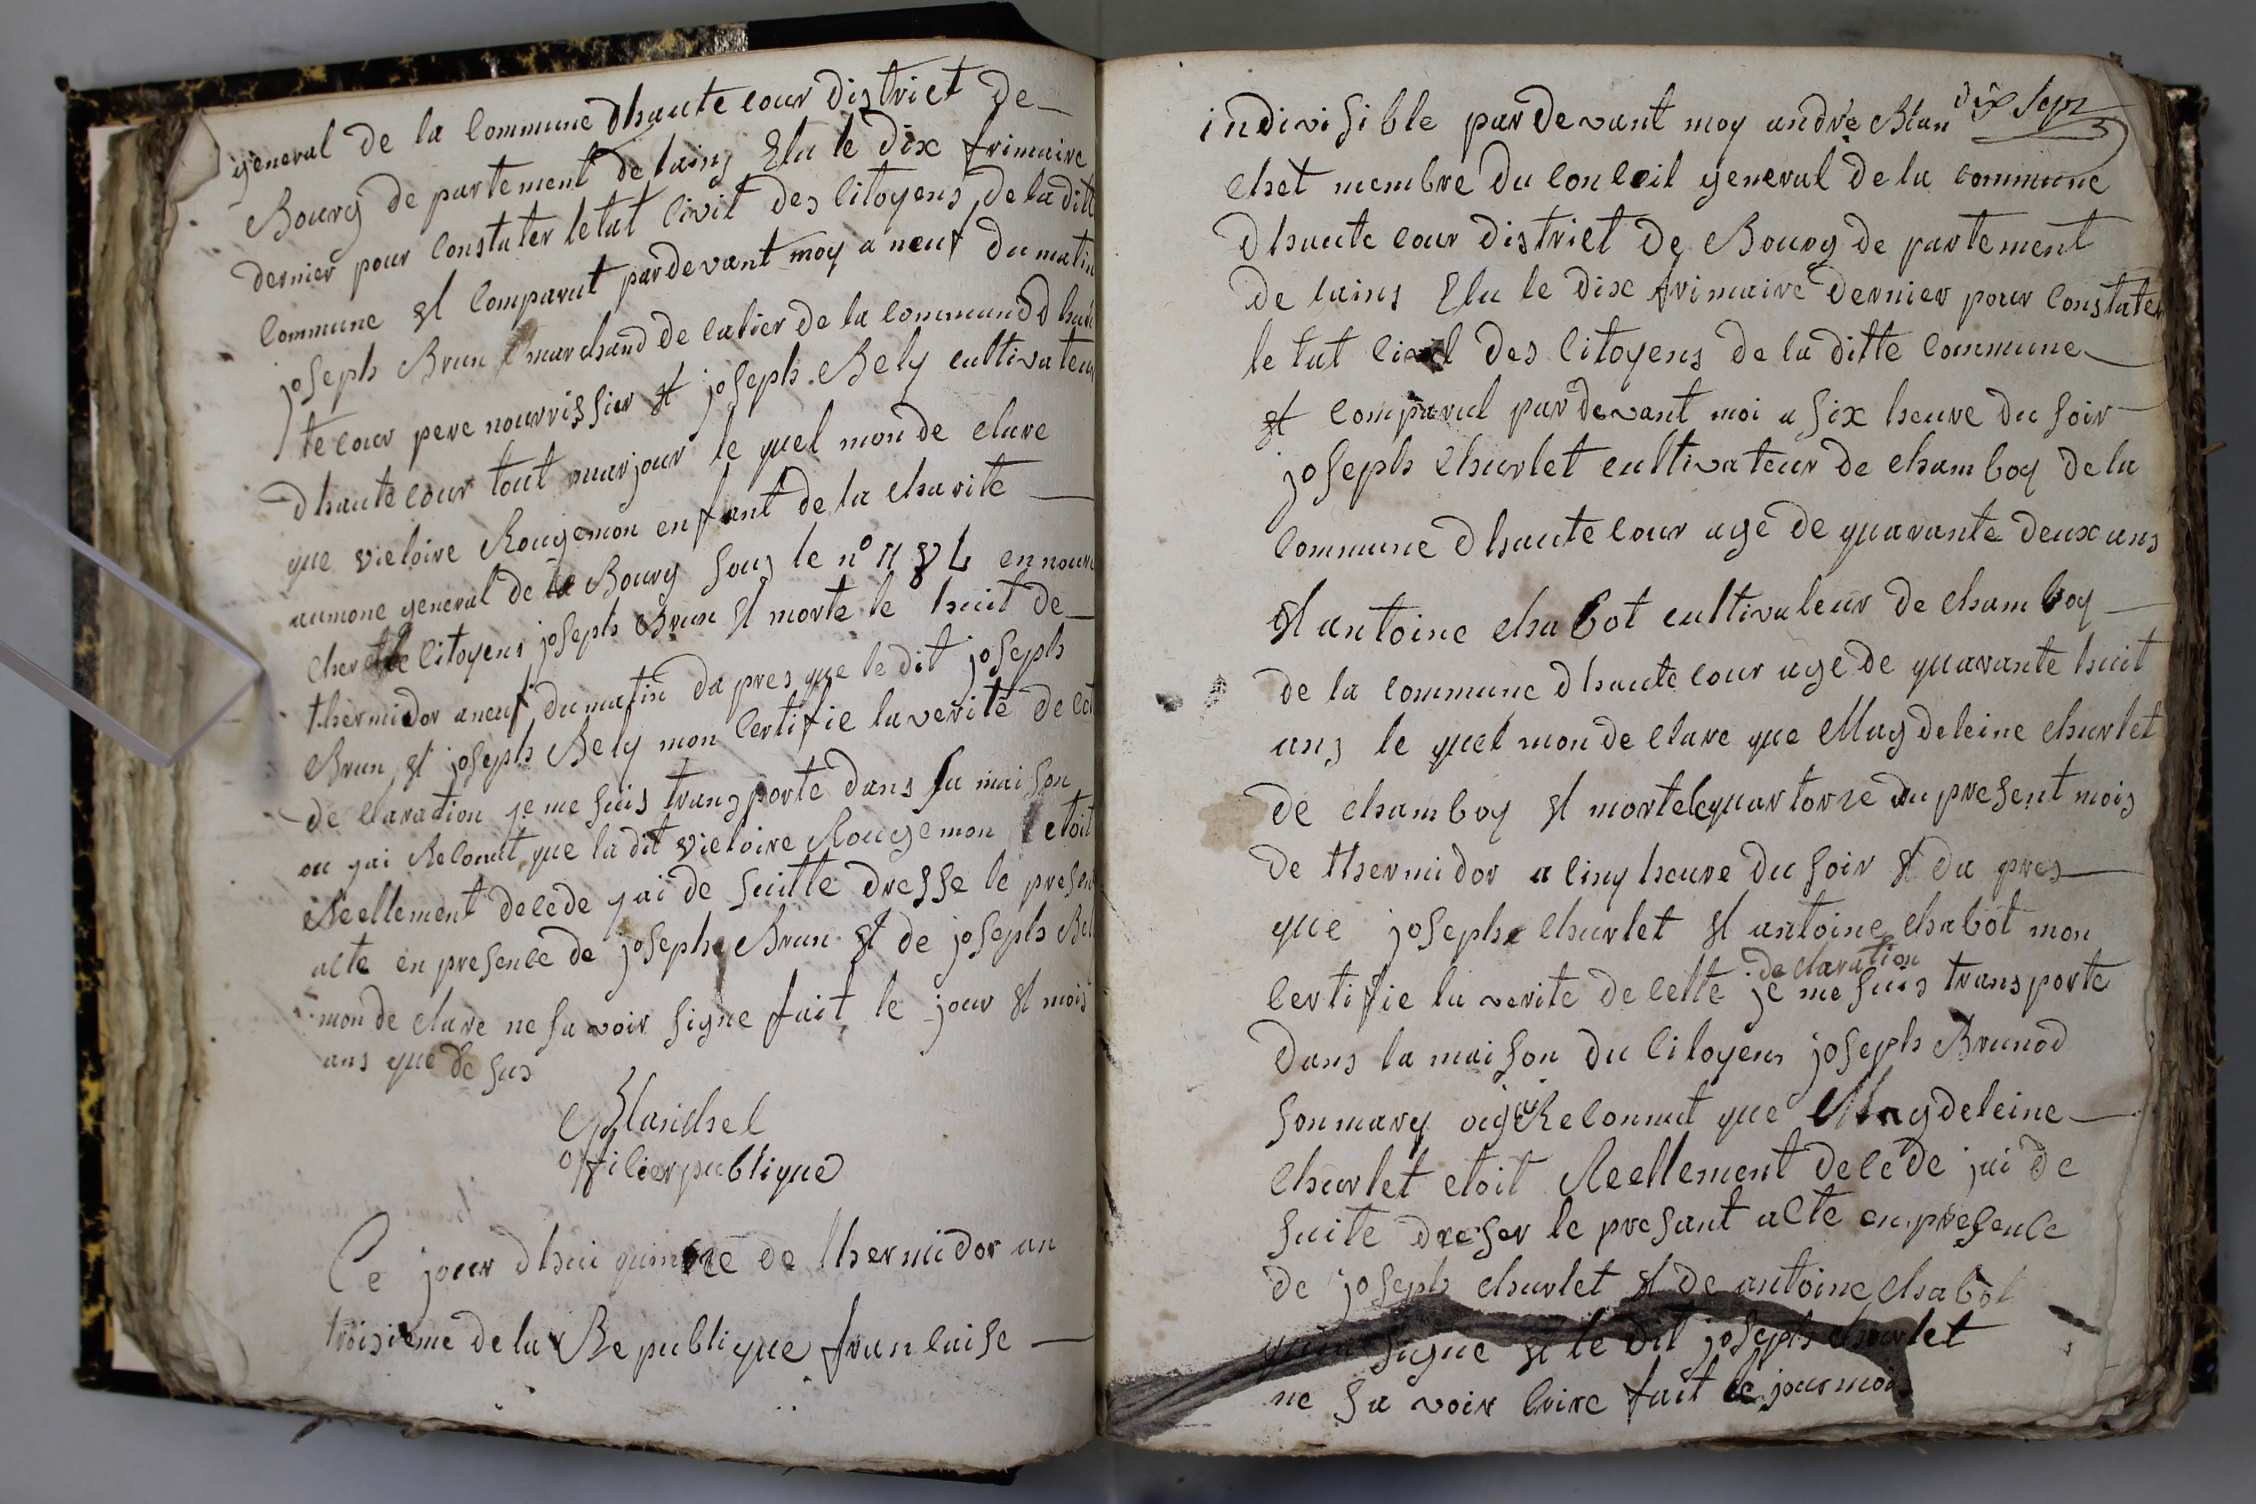 general de la Commune dhautecour district de
Bourg de partement de lains Elu le dix frimaire
dernier pour Constater letat Civil des Citoyens de la ditte
Commune et Comparut pardevant moy a neuf du matin
joseph Brun marchand de la commune dhau
tecour pere nourrissier et joseph Bely cultivateur
dhautecour tout le quel mon de clare
que victoire Rougemon enfant de la charite
aumone general de Bourg sous le n° en nouri
cher Citoyens joseph Brun et morte le huit de
thermidor a neuf du matin da pres que le dit joseph
Brun et joseph Bely mon Certifie la verite de cet
de claration je me suis transporte dans sa maison
ou jai Reconut que la dit victoire Rougemon etoit
Reellement decede jai de suitte dresse le presen
acte en presence de joseph Brun et de joseph Bely
mon de clare ne sa voir signe fait le jour et mois
ans que de sus
Blanchet
officier publique
Ce jour dhui quinze de thermidor an
troisieme de la Republique francaise
dix sept
indivisible par devant moy andre Blan
chet membre du conceil general de la commune
dhautecour district de Bourg de partement
de lains Elu le dix frimaire dernier pour Constater
le tat civil des Citoyens de la ditte Commune
et comparut par devant moi a six heure du soir
joseph churlet cultivateur de chamboy de la
Commune dhautecour age de quarante deux ans
et antoine chabot cultivateur de chamboy
de la commune dhautecour age de quarante huit
ans le quel mon de clare que Magdeleine churlet
de chamboy et morte le quartorze du present mois
de thermidor a cinq heure du soir et da pres
que joseph churlet et antoine chabot mon
declaration
certifie la verite de cette je me suis transporte
dans la maison du Citoyens joseph Brunod
son mary ou jai Reconnut que Magdeleine
churlet etoit Reellement decede jai de
suite dreser le presant acte en presence
de joseph churlet et de antoine chabot
signe et le dit joseph churlet
ne sa voir crire fait le jour mois